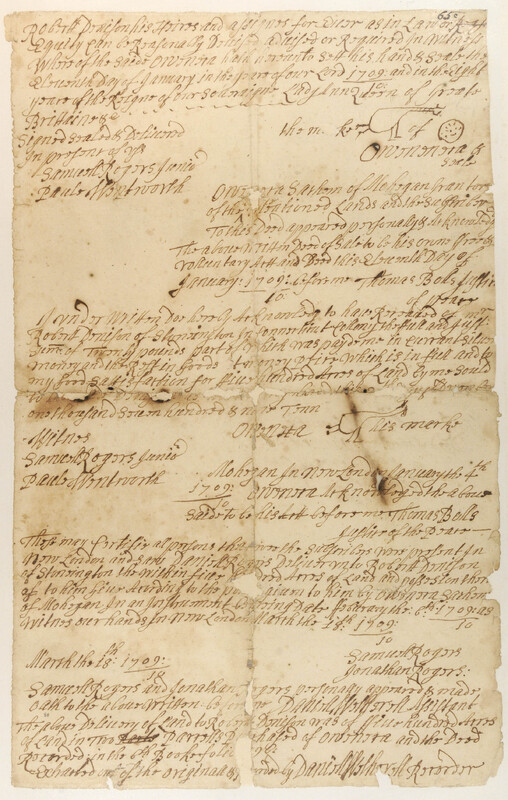 Robert Denison his Heires and assignes for Ever as in Law or
Equity Can be Reasonally Devised advised or Required In witness
Where of the saide Owenera hath hereunto sett his hand & seale the
Eleventh Day of January in the yeare of our Lord 1709: and in the Eight
yeare of the Reigne of our Soveraigne Lady Ann Queen of Greate
Brittaine &c
Signed sealed & Delivered the marke of
In presenc of us Owenera &
Samuell Rogers Junio seale
Paule Wentworth
Owenera Sachem of Mohegan
of the Lands and the suscriber
To this Deed appeared personally & acknowled
The above written Deed of sale to be his owne free &
Volluntary Act and Deed this Eleventh Day of
January: 1709: before me Thomas Bolls Justice
10 of peace
I under written Doe hereby acknowledg to have Received of
Robert Denison of Stonington In Connecticut Collony the full and Just
sume of Twenty pounds part of which was payd me in currant silver
money and the Rest in Goods which is in full and to
my good satisfaction for five hundred acres of Land by me sould
to
one thousand seven hundred & nine Tenn
Witnes Owenera his marke
Samuell Rogers Junio
Paule Wentworth
Mohegan In New London January the
1709: Owenera Acknowledged the above
10
saide to be his Act before me Thomas Bolls
Justice of the Peace
These may Certifie all persons that wee the suscribers were present In
New London and saw Daniell Deliver unto Robert Denison
of Stonington the within five hundred acres of Land and possesion ther
of to him given to him by Owenera Sachem
of Mohegan In an Instrument bearing Date february the 6th: 1709: as
10
witnes our hands In New London March the 18th: 1709:
10
Samuell Rogers
March the 18th: 1709: Jonathan Rogers:
10
Samuell Rogers and Jonathan Rogers personaly appeared & made
oath to the above written before Daniell Wetherell Assistant
The above Delivery of Land to Robert Denison was of five hundred acres
of Land in Two Parcells Purchased of Owenera and the Deed
Recorded in the 6th Booke folio
Extracted out of the originall & by Daniell Wetherell Recorder